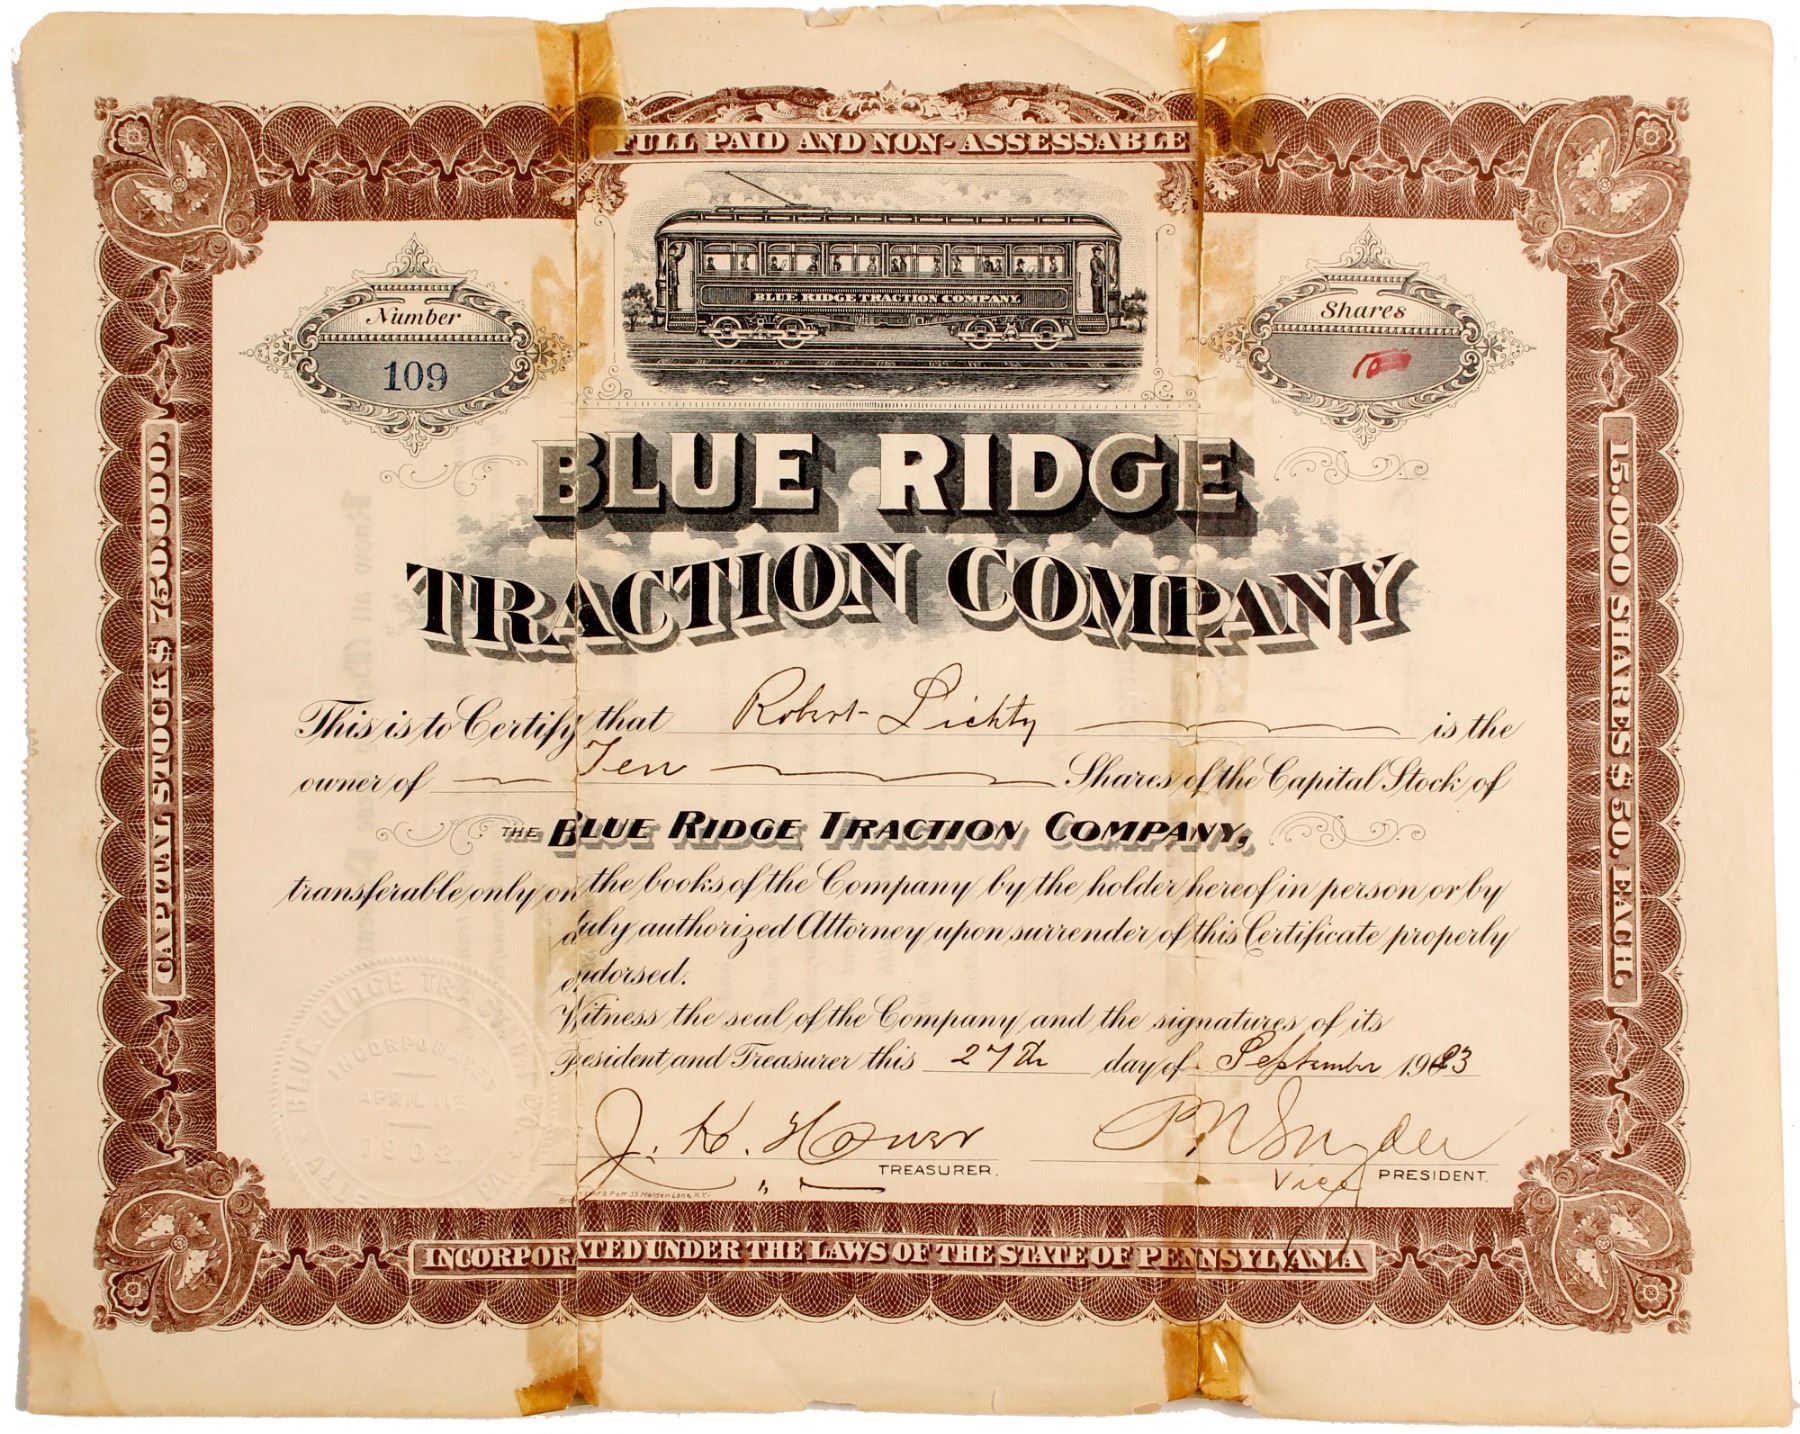 FULL PAID AND NON-ASSESSABLE
BLUE RIDGE TRACTION COMPANY.
Number
109
Shares
10
CAPITAL STOCK $ 750.000.
15.000 SHARES $ 50. EACH.
BLUE RIDGE
TRACTION COMPANY
This is to Certify that Robert Lichty is the
owner of Ten Shares of the Capital Stock of
THE BLUE RIDGE TRACTION COMPANY,
transferable only on the books of the Company by the holder hereof in person or by
duly authorized Attorney upon surrender of this Certificate properly
endorsed.
Witness the seal of the Company and the signatures of its
President and Treasurer this 27th day of September 1903
BLUE RIDGE TRACTION CO
INCORPORATED
APRIL 11th
1902.
PA
J. H. TREASURER.
P. N. Snyder
Vice PRESIDENT.
33 Maiden Lane, N.Y.
INCORPORATED UNDER THE LAWS OF THE STATE OF PENNSYLVANIA